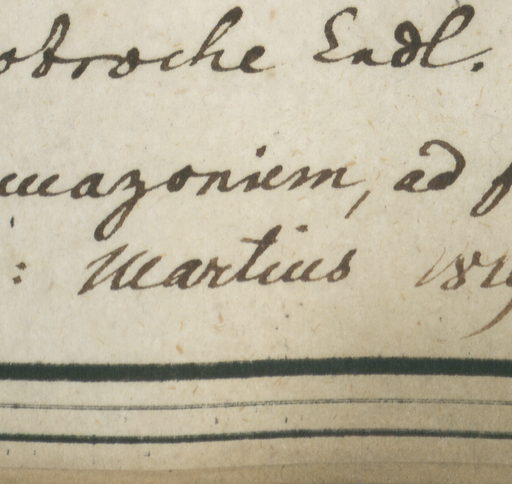 otroche Endl.
mazoniem, ad f
: Martius 1819